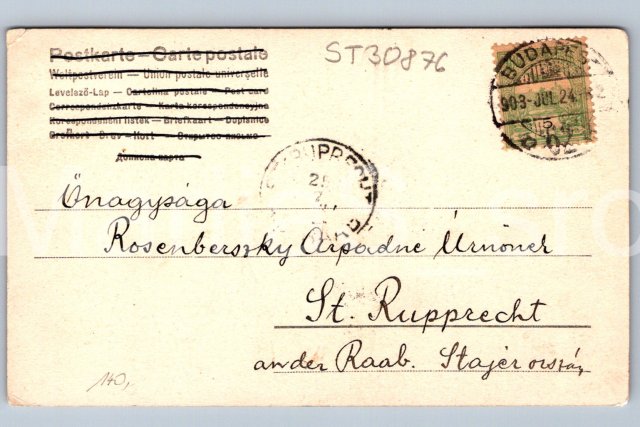 Postkarte — Carte postale
Weltpostverein — Union postale universelle
Levelező-Lap — Cartolina postale — Post card
Correspondenzkarte — Karta korespondencyjna
Korespondenční lístek — Briefkaart — Dopisnice
Brefkort — Brev-Kort — Открытое письмо
Дописна карта
ST30876
BUDAPEST
903 JUL 24
ST. RUPRECHT
25
Őnagysága
Rosenberszky Arpadné Úrnőnek
St. Rupprecht
an der Raab. Stajerország
140,